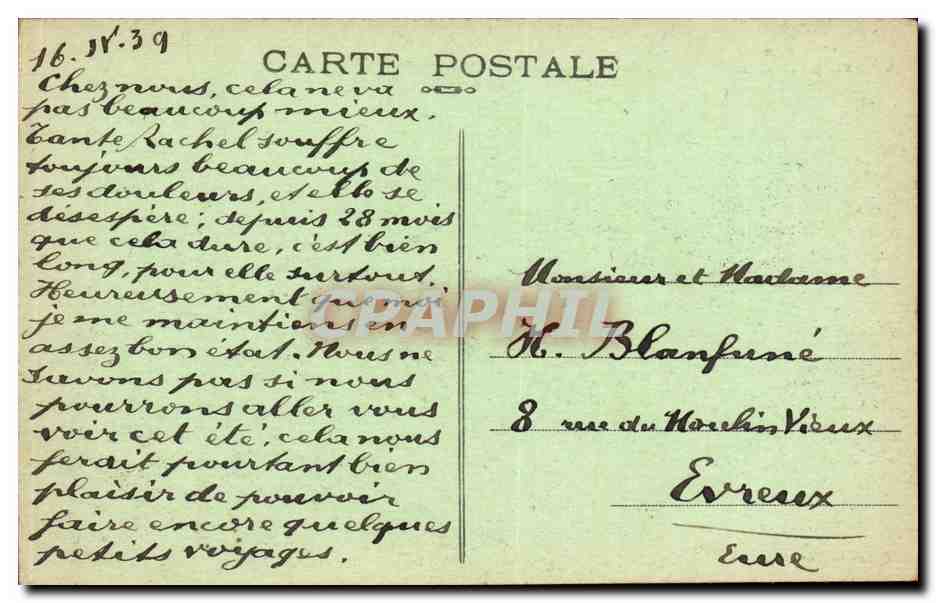 16. IV. 39
CARTE POSTALE
Chez nous, cela ne va
pas beaucoup mieux.
Tante Rachel souffre
toujours beaucoup de
ses douleurs, et elle se
désespère; depuis 28 mois
que cela dure, c'est bien
long, pour elle surtout.
Heureusement que moi
je me maintiens en
assez bon état. Nous ne
savons pas si nous
pourrons aller vous
voir cet été, cela nous
ferait pourtant bien
plaisir de pouvoir
faire encore quelques
petits voyages.
Monsieur et Madame
H. Blanfuné
8 rue du Moulin Vieux
Evreux
Eure
CPAPHIL